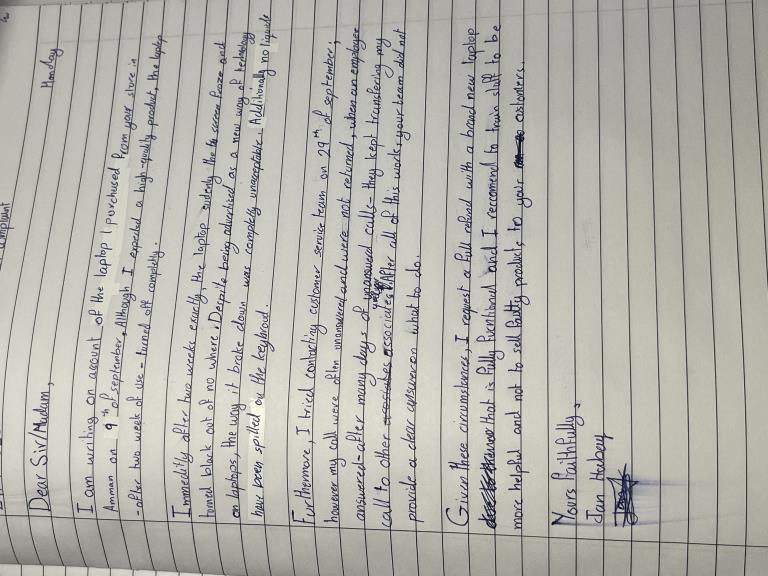 Monday
Dear Sir/Madam,
I am writing on account of the laptop I purchased from your store in
Amman on 9th of september, Although I expected a high-quality product, the laptop
-after two week of use- turned off completely.
Immeditly after two weeks exactly, the laptop sudenly the screen froze and
turned black out of no where. Despite being advertised as a new way of technology
on laptops, the way it brake down was completly unacceptable. Additionally no liquide
have been spilled on the keybroad.
Furthermore, I tried contacting customer service team on 29th of september;
however my call were often unanswered and were not returned, when an employee
answered-after many days of unanswered calls- they kept transfering my
call to other associates. After all of this work, your team did not
provide a clear answer on what to do.
Given these circumstances, I request a full refund with a brand new laptop
that is fully functional and I reccomend to train staff to be
more helpful and not to sell faulty products to your customers.
Yours Faithfully,
Jan